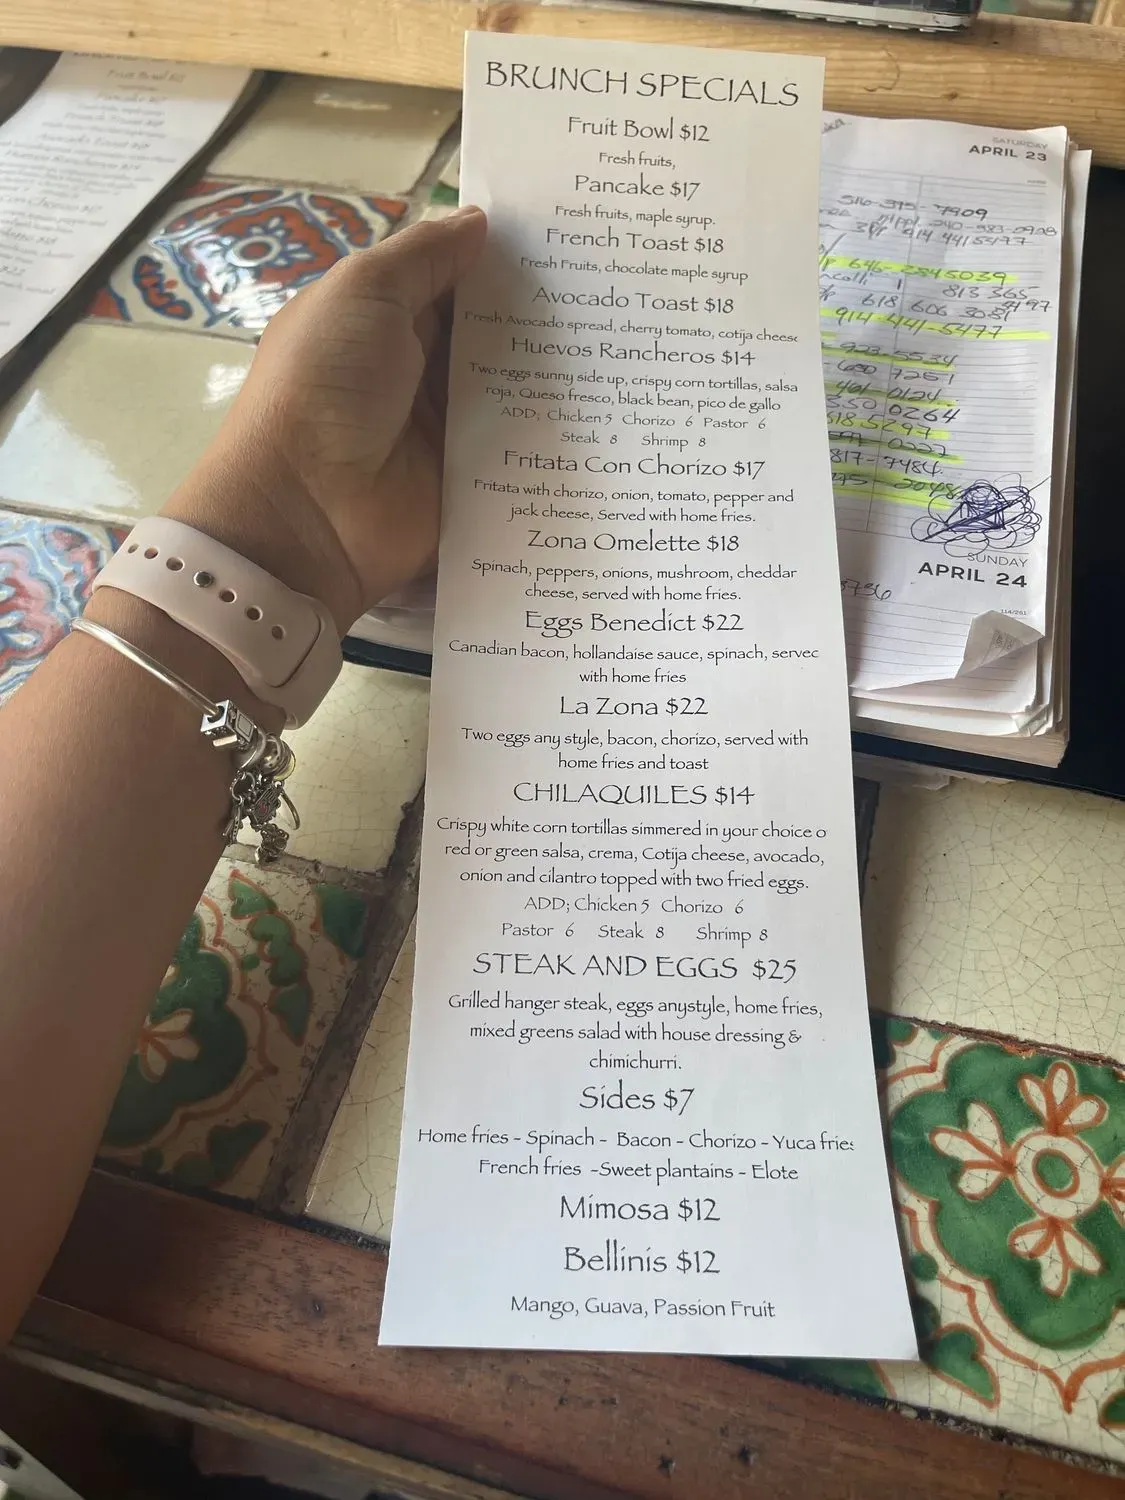 BRUNCH SPECIALS
Fruit Bowl $12
Fresh fruits,
Pancake $17
Fresh fruits, maple syrup.
French Toast $18
Fresh Fruits, chocolate maple syrup
Avocado Toast $18
Fresh Avocado spread, cherry tomato, cotija cheese
Huevos Rancheros $14
Two eggs sunny side up, crispy corn tortillas, salsa
roja, Queso fresco, black bean, pico de gallo
ADD; Chicken 5 Chorizo 6 Pastor 6
Steak 8 Shrimp 8
Fritata Con Chorizo $17
Fritata with chorizo, onion, tomato, pepper and
jack cheese, Served with home fries.
Zona Omelette $18
Spinach, peppers, onions, mushroom, cheddar
cheese, served with home fries.
Eggs Benedict $22
Canadian bacon, hollandaise sauce, spinach, servec
with home fries
La Zona $22
Two eggs any style, bacon, chorizo, served with
home fries and toast
CHILAQUILES $14
Crispy white corn tortillas simmered in your choice o
red or green salsa, crema, Cotija cheese, avocado,
onion and cilantro topped with two fried eggs.
ADD; Chicken 5 Chorizo 6
Pastor 6 Steak 8 Shrimp 8
STEAK AND EGGS $25
Grilled hanger steak, eggs anystyle, home fries,
mixed greens salad with house dressing &
chimichurri.
Sides $7
Home fries - Spinach - Bacon - Chorizo - Yuca fries
French fries -Sweet plantains - Elote
Mimosa $12
Bellinis $12
Mango, Guava, Passion Fruit
SATURDAY
APRIL 23
646-2845039
914-441-5477
923-5534
680 7251
401-0124
350 0264
518 5297
817-7484
SUNDAY
APRIL 24
Fruit Bowl
Pancake
French Toast
Avocado Toast